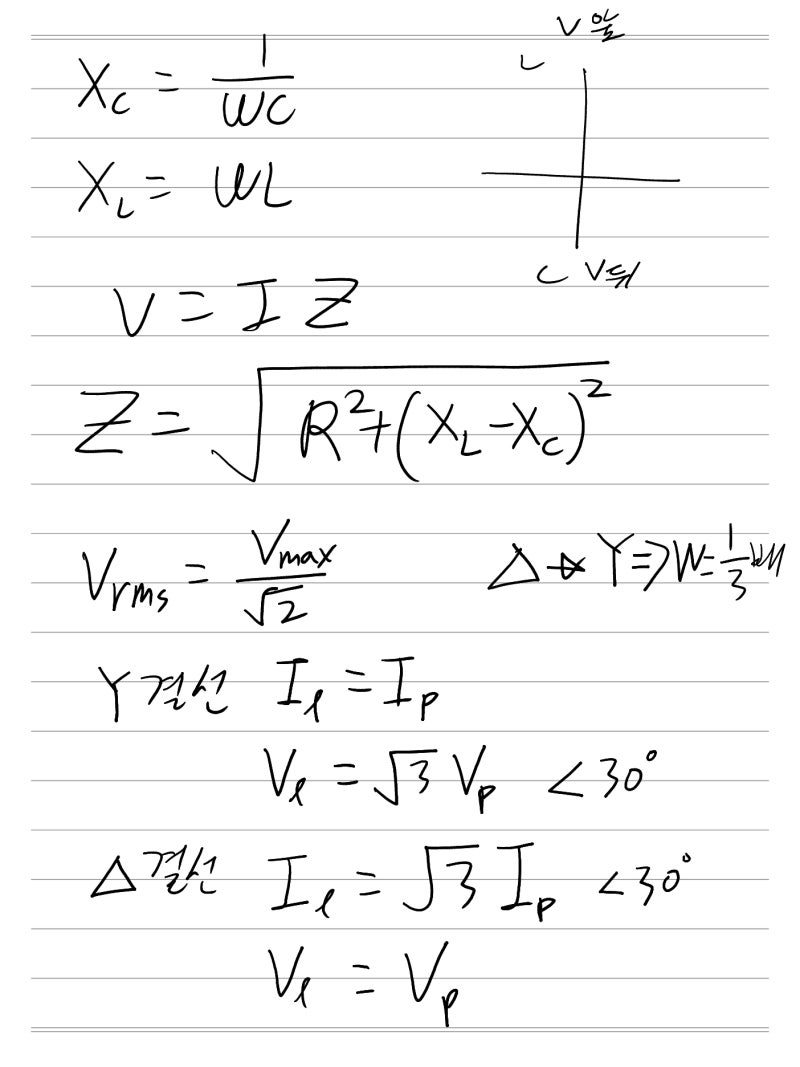 V 앞
L
X_C = 1/WC
X_L = WL
C V뒤
V = I Z
Z = √(R²+(X_L-X_C)²)
V_rms = V_max/√2
△ → Y ⇒ W = 1/3
Y 결선 I_l = I_p
V_l = √3 V_p <30°
△ 결선 I_l = √3 I_p <30°
V_l = V_p